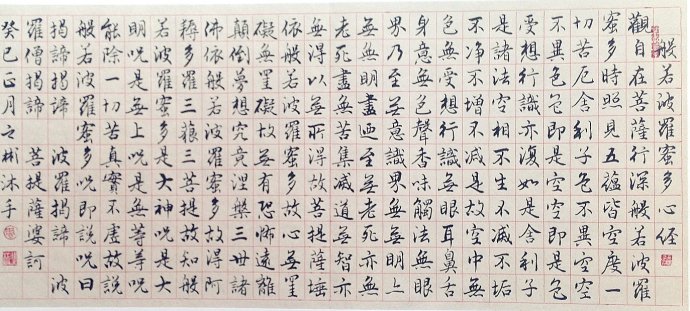 般若波羅蜜多心經
觀自在菩薩行深般若波羅
蜜多時照見五蘊皆空度一
切苦厄舍利子色不異空空
不異色色即是空空即是色
受想行識亦復如是舍利子
是諸法空相不生不滅不垢
不净不增不減是故空中無
色無受想行識無眼耳鼻舌
身意無色聲香味觸法無眼
界乃至無意識界無無明亦
無無明盡迺至無老死亦無
老死盡無苦集滅道無智亦
無得以無所得故菩提薩埵
依般若波羅蜜多故心無罣
礙無罣礙故無有恐怖遠離
顛倒夢想究竟涅槃三世諸
佛依般若波羅蜜多故得阿
耨多羅三藐三菩提故知般
若波羅蜜多是大神呪是大
明呪是無上呪是無等等呪
能除一切苦真實不虛故說
般若波羅蜜多呪即說呪曰
揭諦揭諦 波羅揭諦 波
羅僧揭諦 菩提薩婆訶
癸巳正月之彬沐手